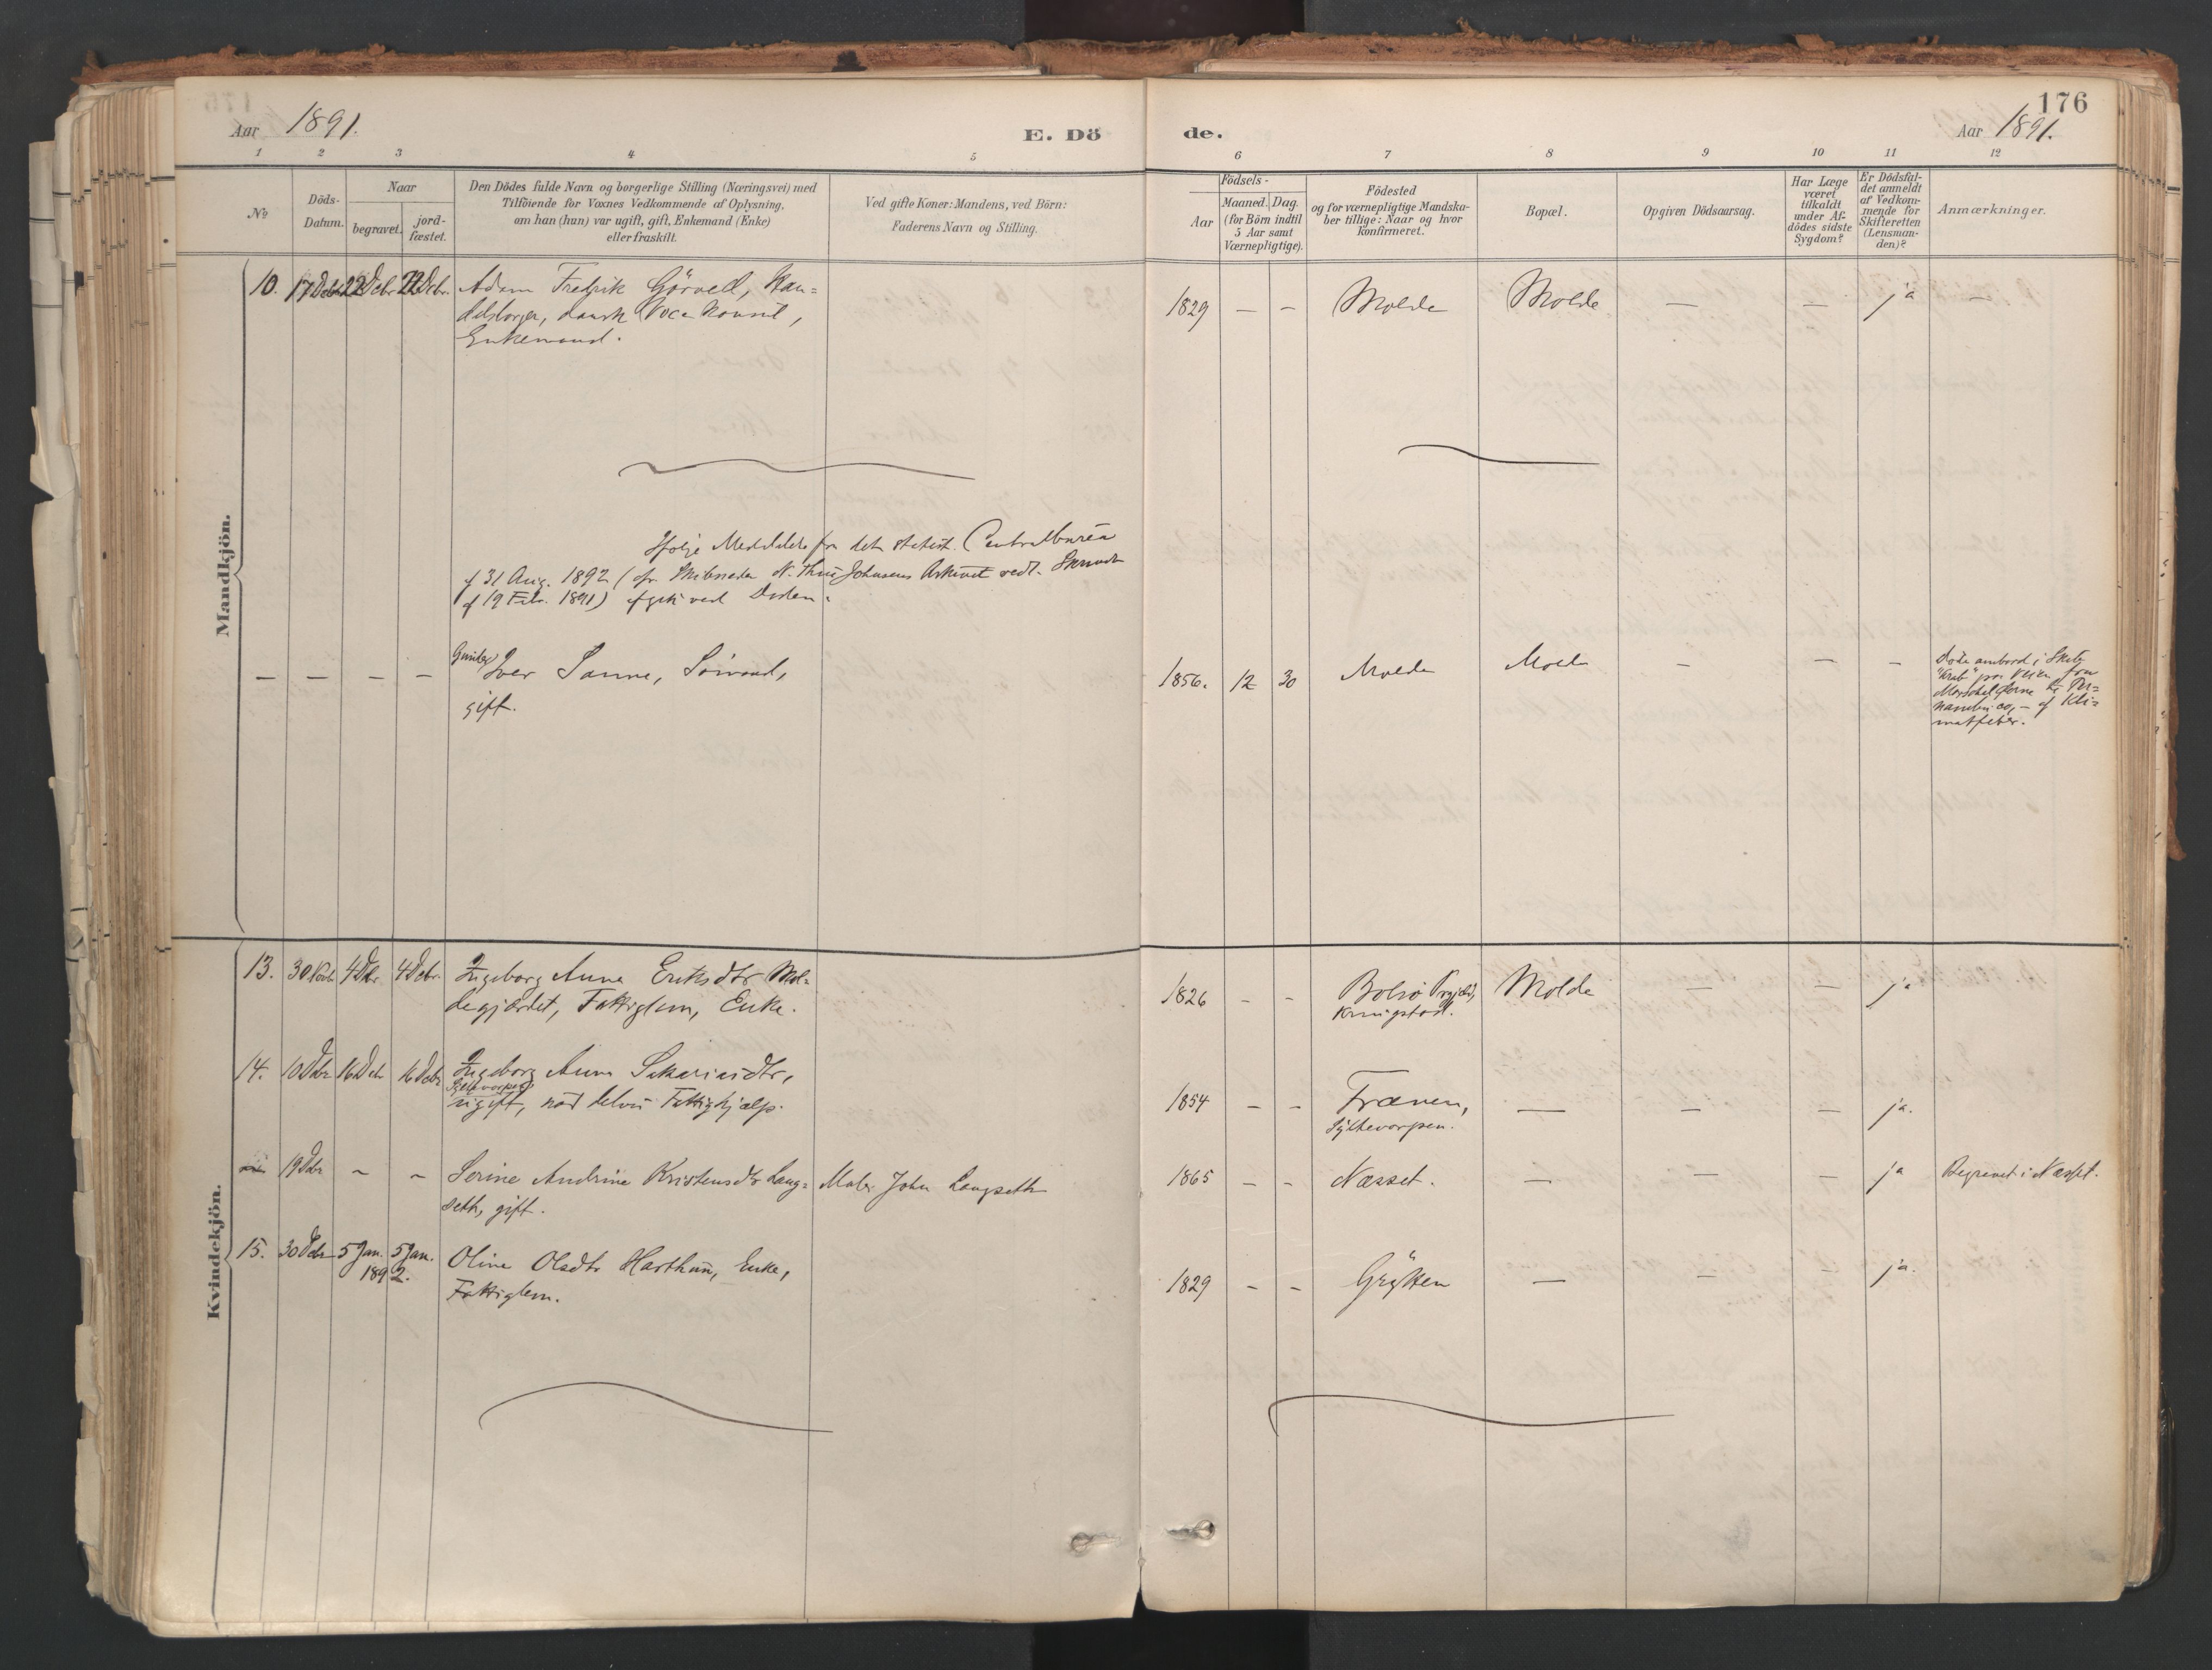 Aar 1891.
E. Dö
de.
176
Aar 1891.
1 2 3 4 5 6 7 8 9 10 11 12
No
Döds-
Datum.
Naar
begravet.
jord-
fæstet.
Den Dödes fulde Navn og borgerlige Stilling (Næringsvei) med
Tilföiende for Voxnes Vedkommende af Oplysning,
om han (hun) var ugift, gift, Enkemand (Enke)
eller fraskilt.
Ved gifte Koner: Mandens, ved Börn:
Faderens Navn og Stilling.
Födsels-
Aar
Maaned. Dag.
(for Börn indtil
5 Aar samt
Værnepligtige).
Födested
og for værnepligtige Mandska-
ber tillige: Naar og hvor
konfirmeret.
Bopæl.
Opgiven Dödsaarsag.
Har Læge
været
tilkaldt
under Af-
dödes sidste
Sygdom?
Er Dödsfal-
det anmeldt
af Vedkom-
mende for
Skifteretten
(Lensman-
den)?
Anmærkninger.
Mandkjön.
10. 17 Debr 22 Debr 22 Debr. Adam Fredrik Görved, Han=
delsborger, dansk Vice Konsul,
Enkemand.
1829 — — Molde Molde — — ja —
Ifølge Meddelelse fra det statist. Centralbureau
af 31 Aug. 1892 (ofr. Skibsreder N. Johnsens Skrivelse
af 19 Febr. 1891) afgik ved Døden:
— — — — Iver Sanne, Sømand,
gift.
1856. 12 30 Molde Molde — — — Døde ombord i Skib
paa Veien fra
til Per=
nambuco, — af Kli=
matfeber.
Kvindekjön.
13. 30 Novb 4 Dbr 4 Debr. Ingeborg Anne Eriksdtr Mol=
degjærdet, Fattiglem, Enke.
1826 — — Bolsø Prgjæld, Molde — — ja
14. 10 Dbr 16 Debr 16 Debr Ingeborg Anne Sakariasdtr,
Syltevorpen
ugift, nød delvis Fattighjælp.
1854 — — Frænen, — — — ja.
Syltevorpen.
19 Dbr — — Serine Andrine Kristensdtr Lang=
seth, gift.
Maler John Langseth
1865 — — Næsset. — — — ja Begravet i Næsset.
15. 30 Debr 5 Jan. 5 Jan.
1892.
Oline Olsdtr Harthun, Enke,
Fattiglem.
1829 — — Grytten — — — ja.